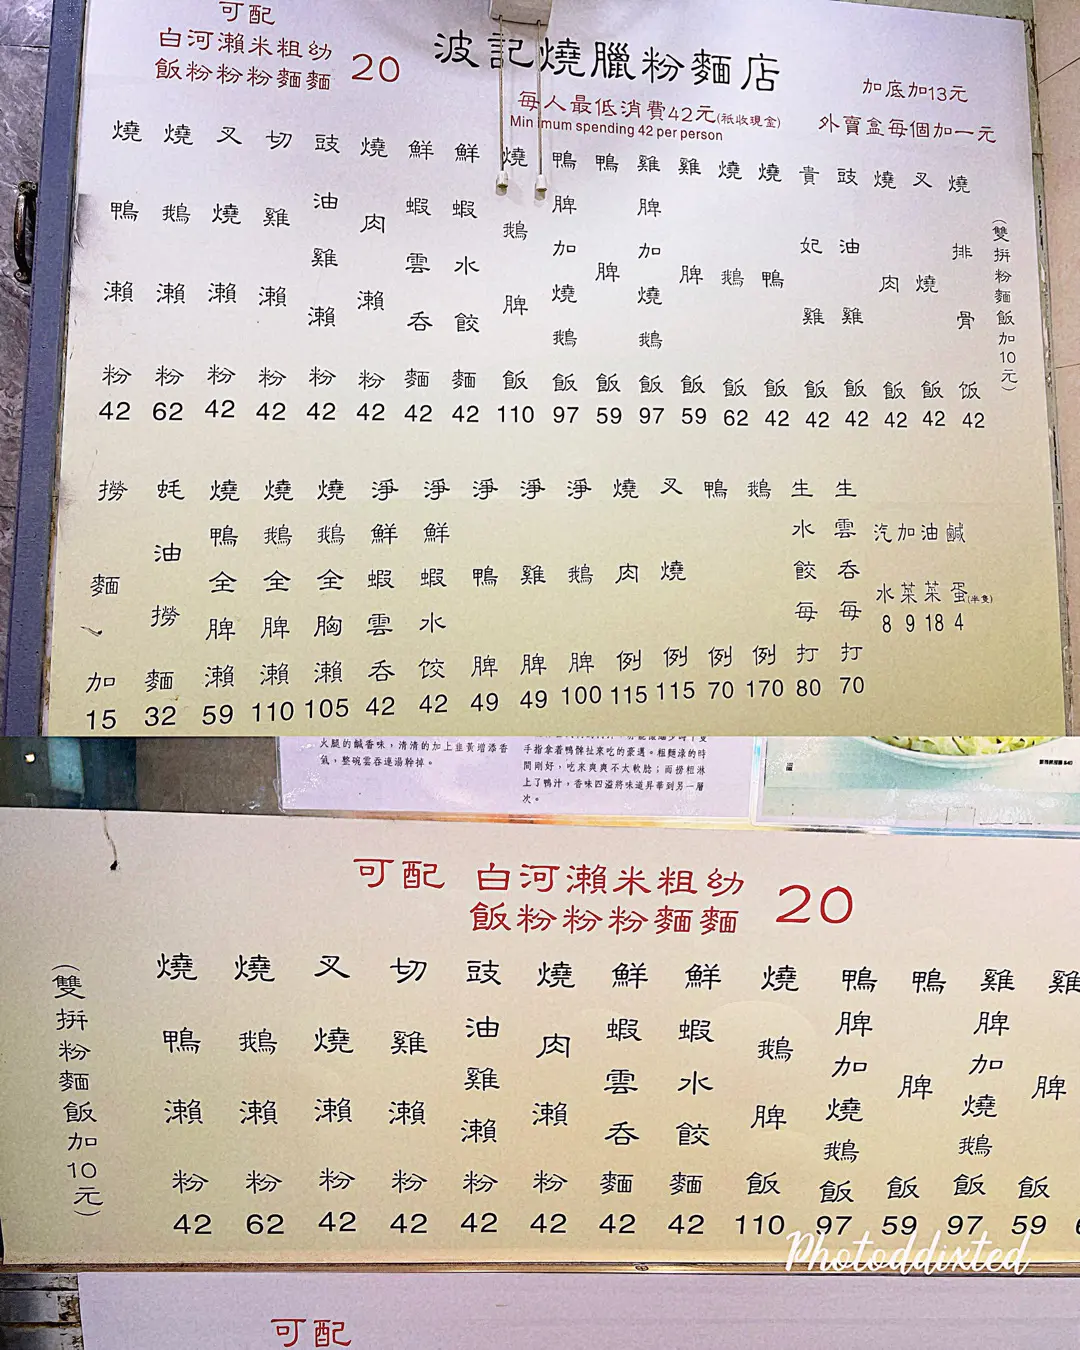 可配
白河瀨米粗幼
飯粉粉粉麵麵 20
波記燒臘粉麵店
每人最低消費42元(祇收現金)
Minimum spending 42 per person
加底加13元
外賣盒每個加一元
燒鴨瀨粉 42
燒鵝瀨粉 62
叉燒瀨粉 42
切雞瀨粉 42
豉油雞瀨粉 42
燒肉瀨粉 42
鮮蝦雲吞麵 42
鮮蝦水餃麵 42
燒鵝脾飯 110
鴨脾加燒鵝飯 97
鴨脾飯 59
雞脾加燒鵝飯 97
雞脾飯 59
燒鵝飯 62
燒鴨飯 42
貴妃雞飯 42
豉油雞飯 42
燒肉飯 42
叉燒飯 42
燒排骨饭 42
(雙拼粉麵飯加10元)
撈麵加 15
蚝油撈麵 32
燒鴨全脾瀨 59
燒鵝全脾瀨 110
燒鵝全胸瀨 105
淨鮮蝦雲吞 42
淨鮮蝦水饺 42
淨鴨脾 49
淨雞脾 49
淨鵝脾 100
燒肉例 115
叉燒例 115
鴨例 70
鵝例 170
生水餃每打 80
生雲吞每打 70
汽水 8
加菜 9
油菜 18
鹹蛋(半隻) 4
火腿的鹹香味，清清的加上韭黃增添香
氣，整碗雲吞連湯幹掉。
手指拿着鴨髀扯來吃的豪邁。粗麵淥的時
間剛好，吃來爽爽不太軟腍；而撈粗淋
上了鴨汁，香味四溢將味道昇華到另一層
次。
可配 白河瀨米粗幼
飯粉粉粉麵麵 20
(雙拼粉麵飯加10元)
燒鴨瀨粉 42
燒鵝瀨粉 62
叉燒瀨粉 42
切雞瀨粉 42
豉油雞瀨粉 42
燒肉瀨粉 42
鮮蝦雲吞麵 42
鮮蝦水餃麵 42
燒鵝脾飯 110
鴨脾加燒鵝飯 97
鴨脾飯 59
雞脾加燒鵝飯 97
雞脾飯 59
Photoddixted
可配